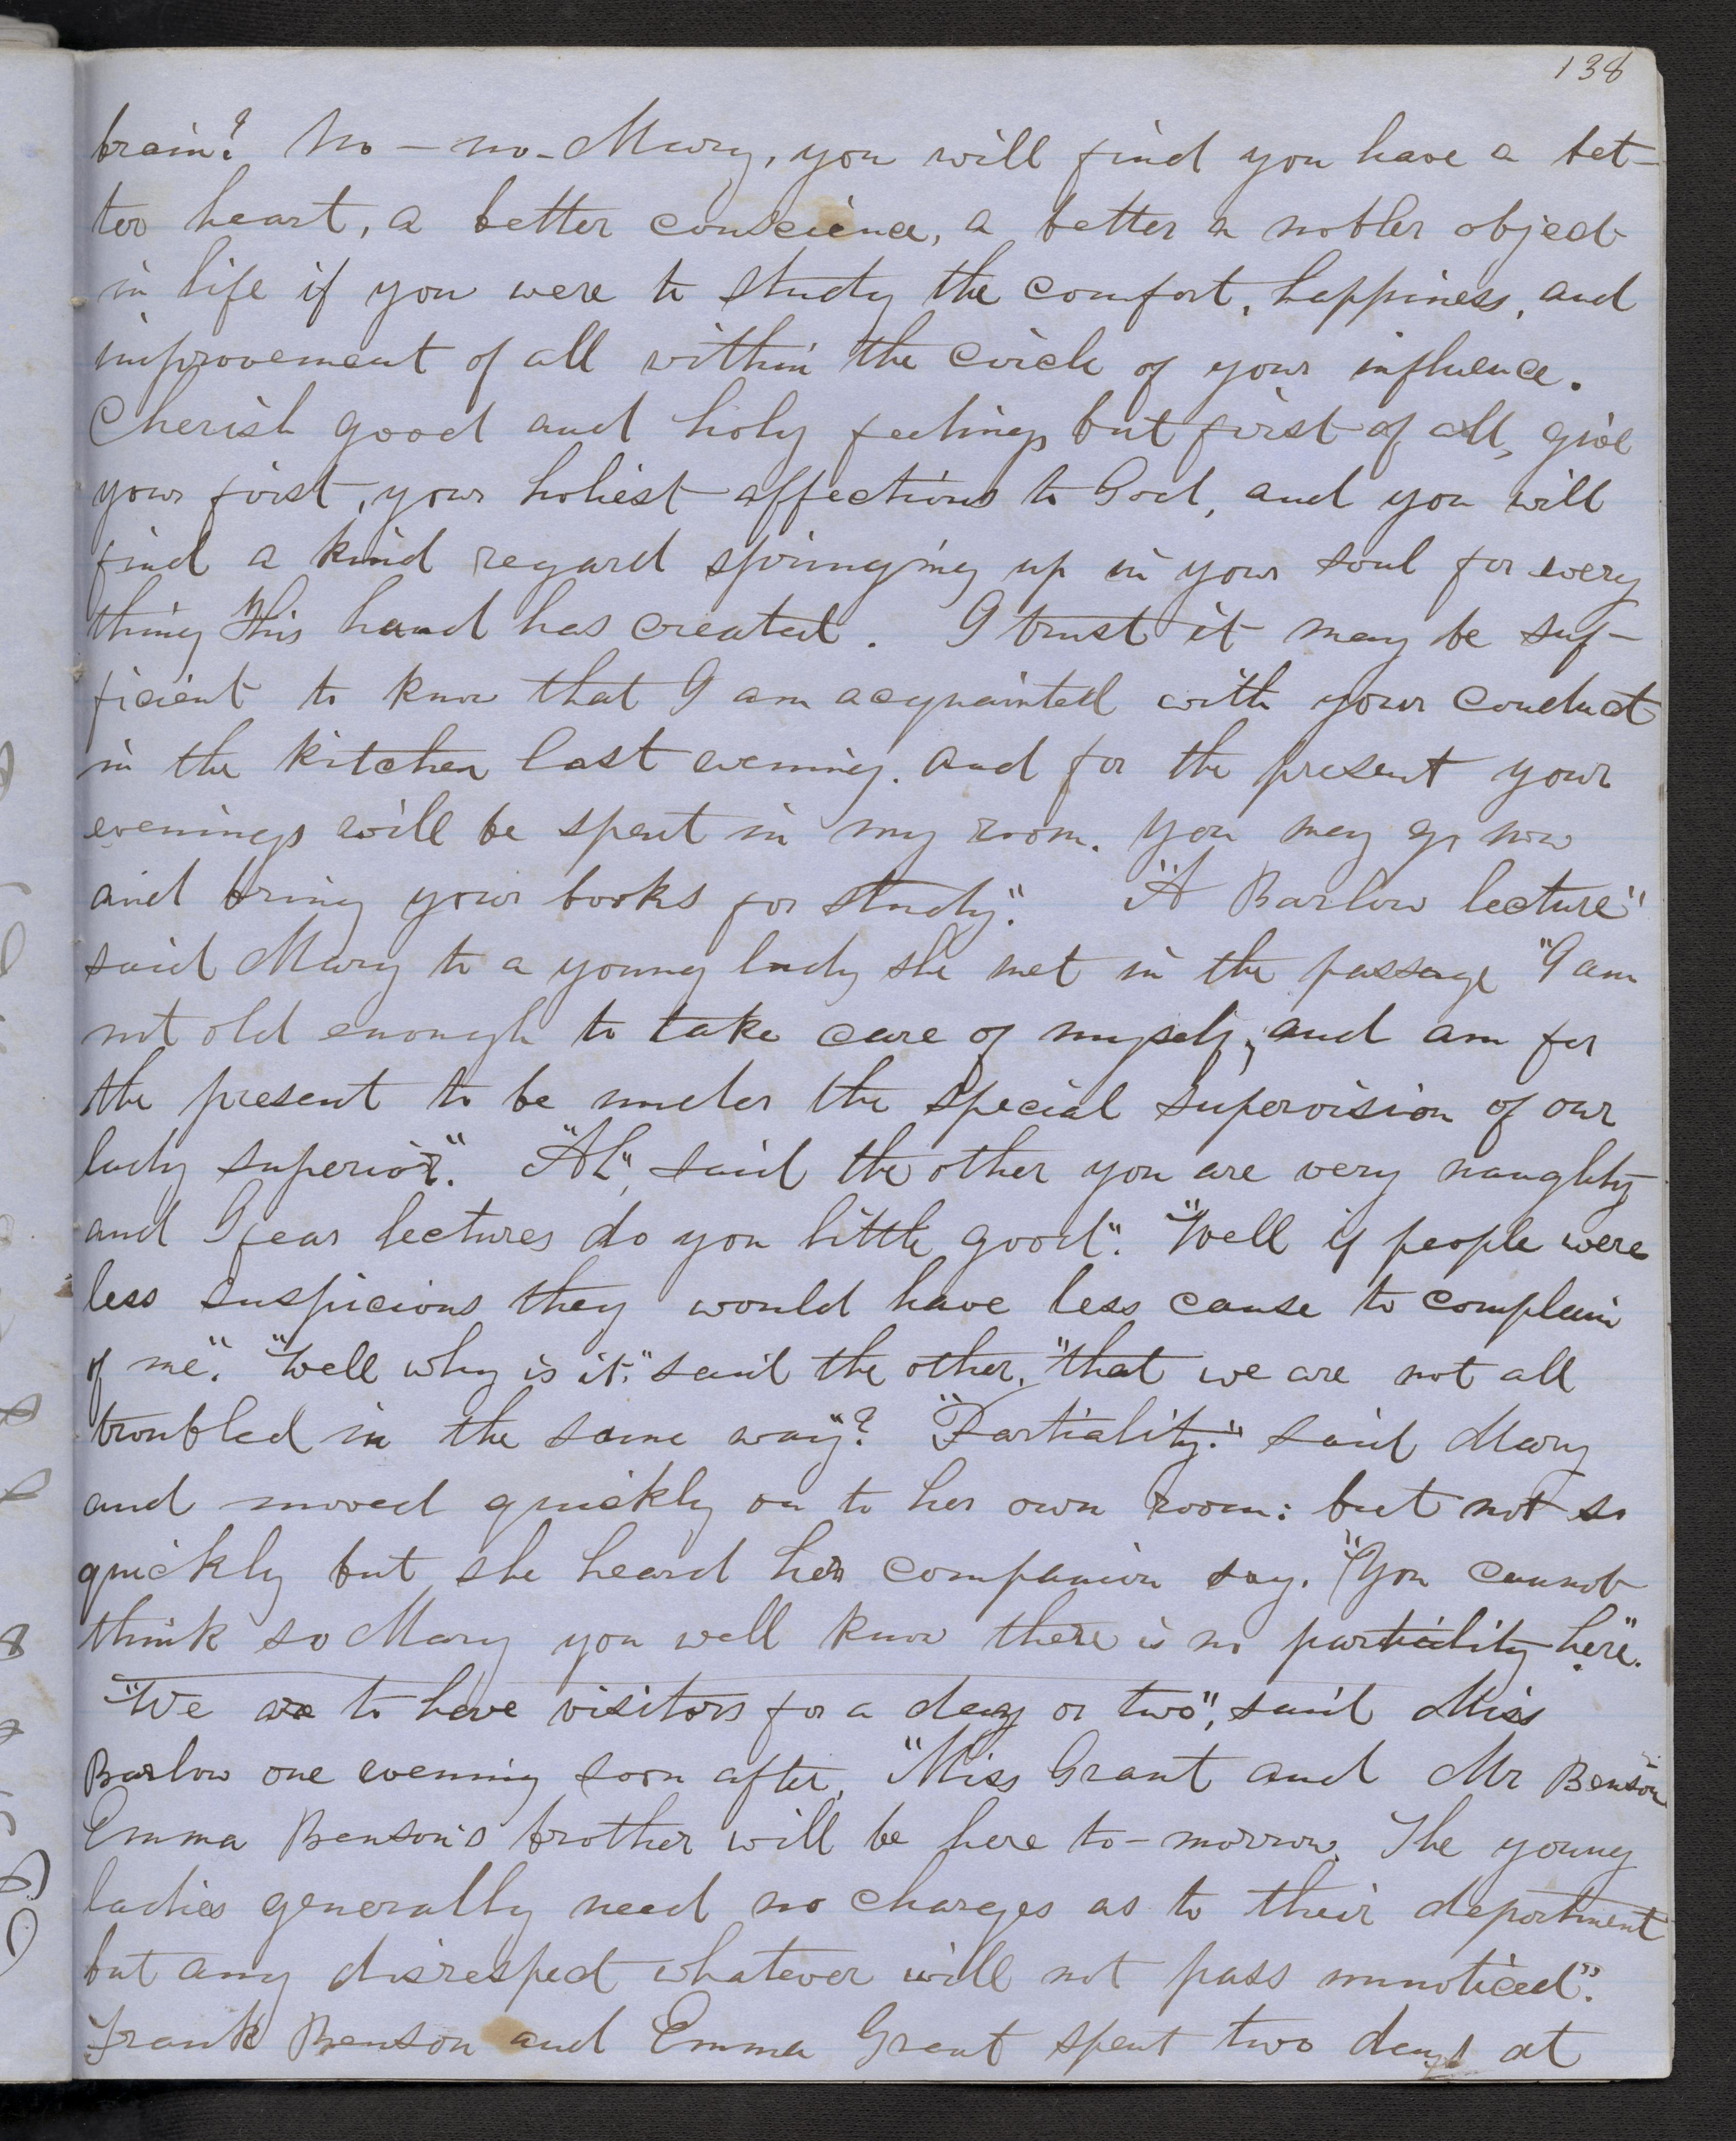 138
brain? No — no - Mary, you will find you have a bet-
ter heart, a better conscience, a better a nobler object
in life if you were to study the comfort, happiness, and
improvement of all within the circle of your influence.
Cherish good and holy feelings but first of all, give
your first, your holiest affections to God, and you will
find a kind regard springing up in your soul for every
thing His hand has created. I trust it may be suf-
ficient to know that I am acquainted with your conduct
in the kitchen last evening. and for the present your
evenings will be spent in my room. you may go now
and bring your books for study". "A Barlow lecture"
said Mary to a young lady she met in the passage "I am
not old enough to take care of myself, and am for
the present to be under the special supervision of our
lady superior". "Ah", said the other you are very naughty
and I fear lectures do you little good". "Well if people were
less suspicious they would have less cause to complain
of me". "Well why is it," said the other, "that we are not all
troubled in the same way"? "Partiality." said Mary
and moved quickly on to her own room: but not so
quickly but she heard her companion say. "You cannot
think so Mary you well know there is no partiality here".
"We are to have visitors for a day or two", said Miss
Barlow one evening soon after, "Miss Grant and Mr Benson
Emma Benson's brother will be here to-morrow. The young
ladies generally need no charges as to their deportment
but any disrespect whatever will not pass unnoticed".
Frank Benson and Emma Grant spent two days at